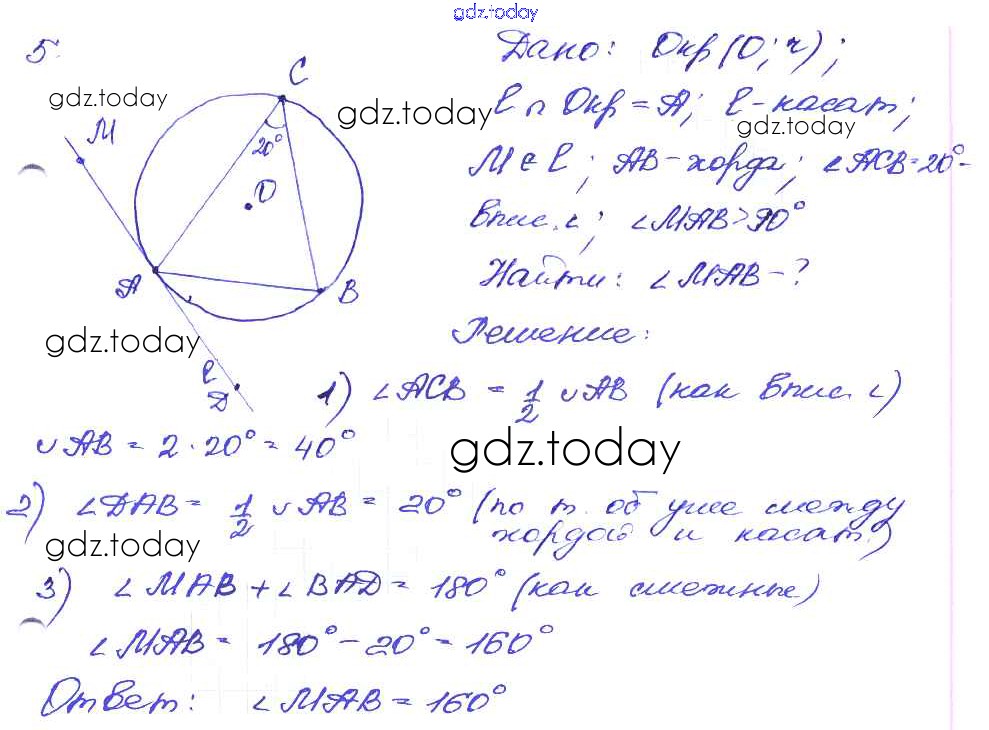 gdz.today
5.
Дано: Окр (О; r);
gdz.today
C
gdz.today
l ∩ Окр = A; l - касат;
gdz.today
M
20°
M ∈ l; AB - хорда; ∠ACB = 20° -
O
впис. ∠; ∠MAB > 90°
A
B
Найти: ∠MAB - ?
gdz.today
Решение:
l
D
1) ∠ACB = 1/2 ∪AB (как впис. ∠)
∪AB = 2 · 20° = 40°
gdz.today
2) ∠DAB = 1/2 ∪AB = 20° (по т. об угле между
хордой и касат.)
gdz.today
3) ∠MAB + ∠BAD = 180° (как смежные)
∠MAB = 180° - 20° = 160°
Ответ: ∠MAB = 160°